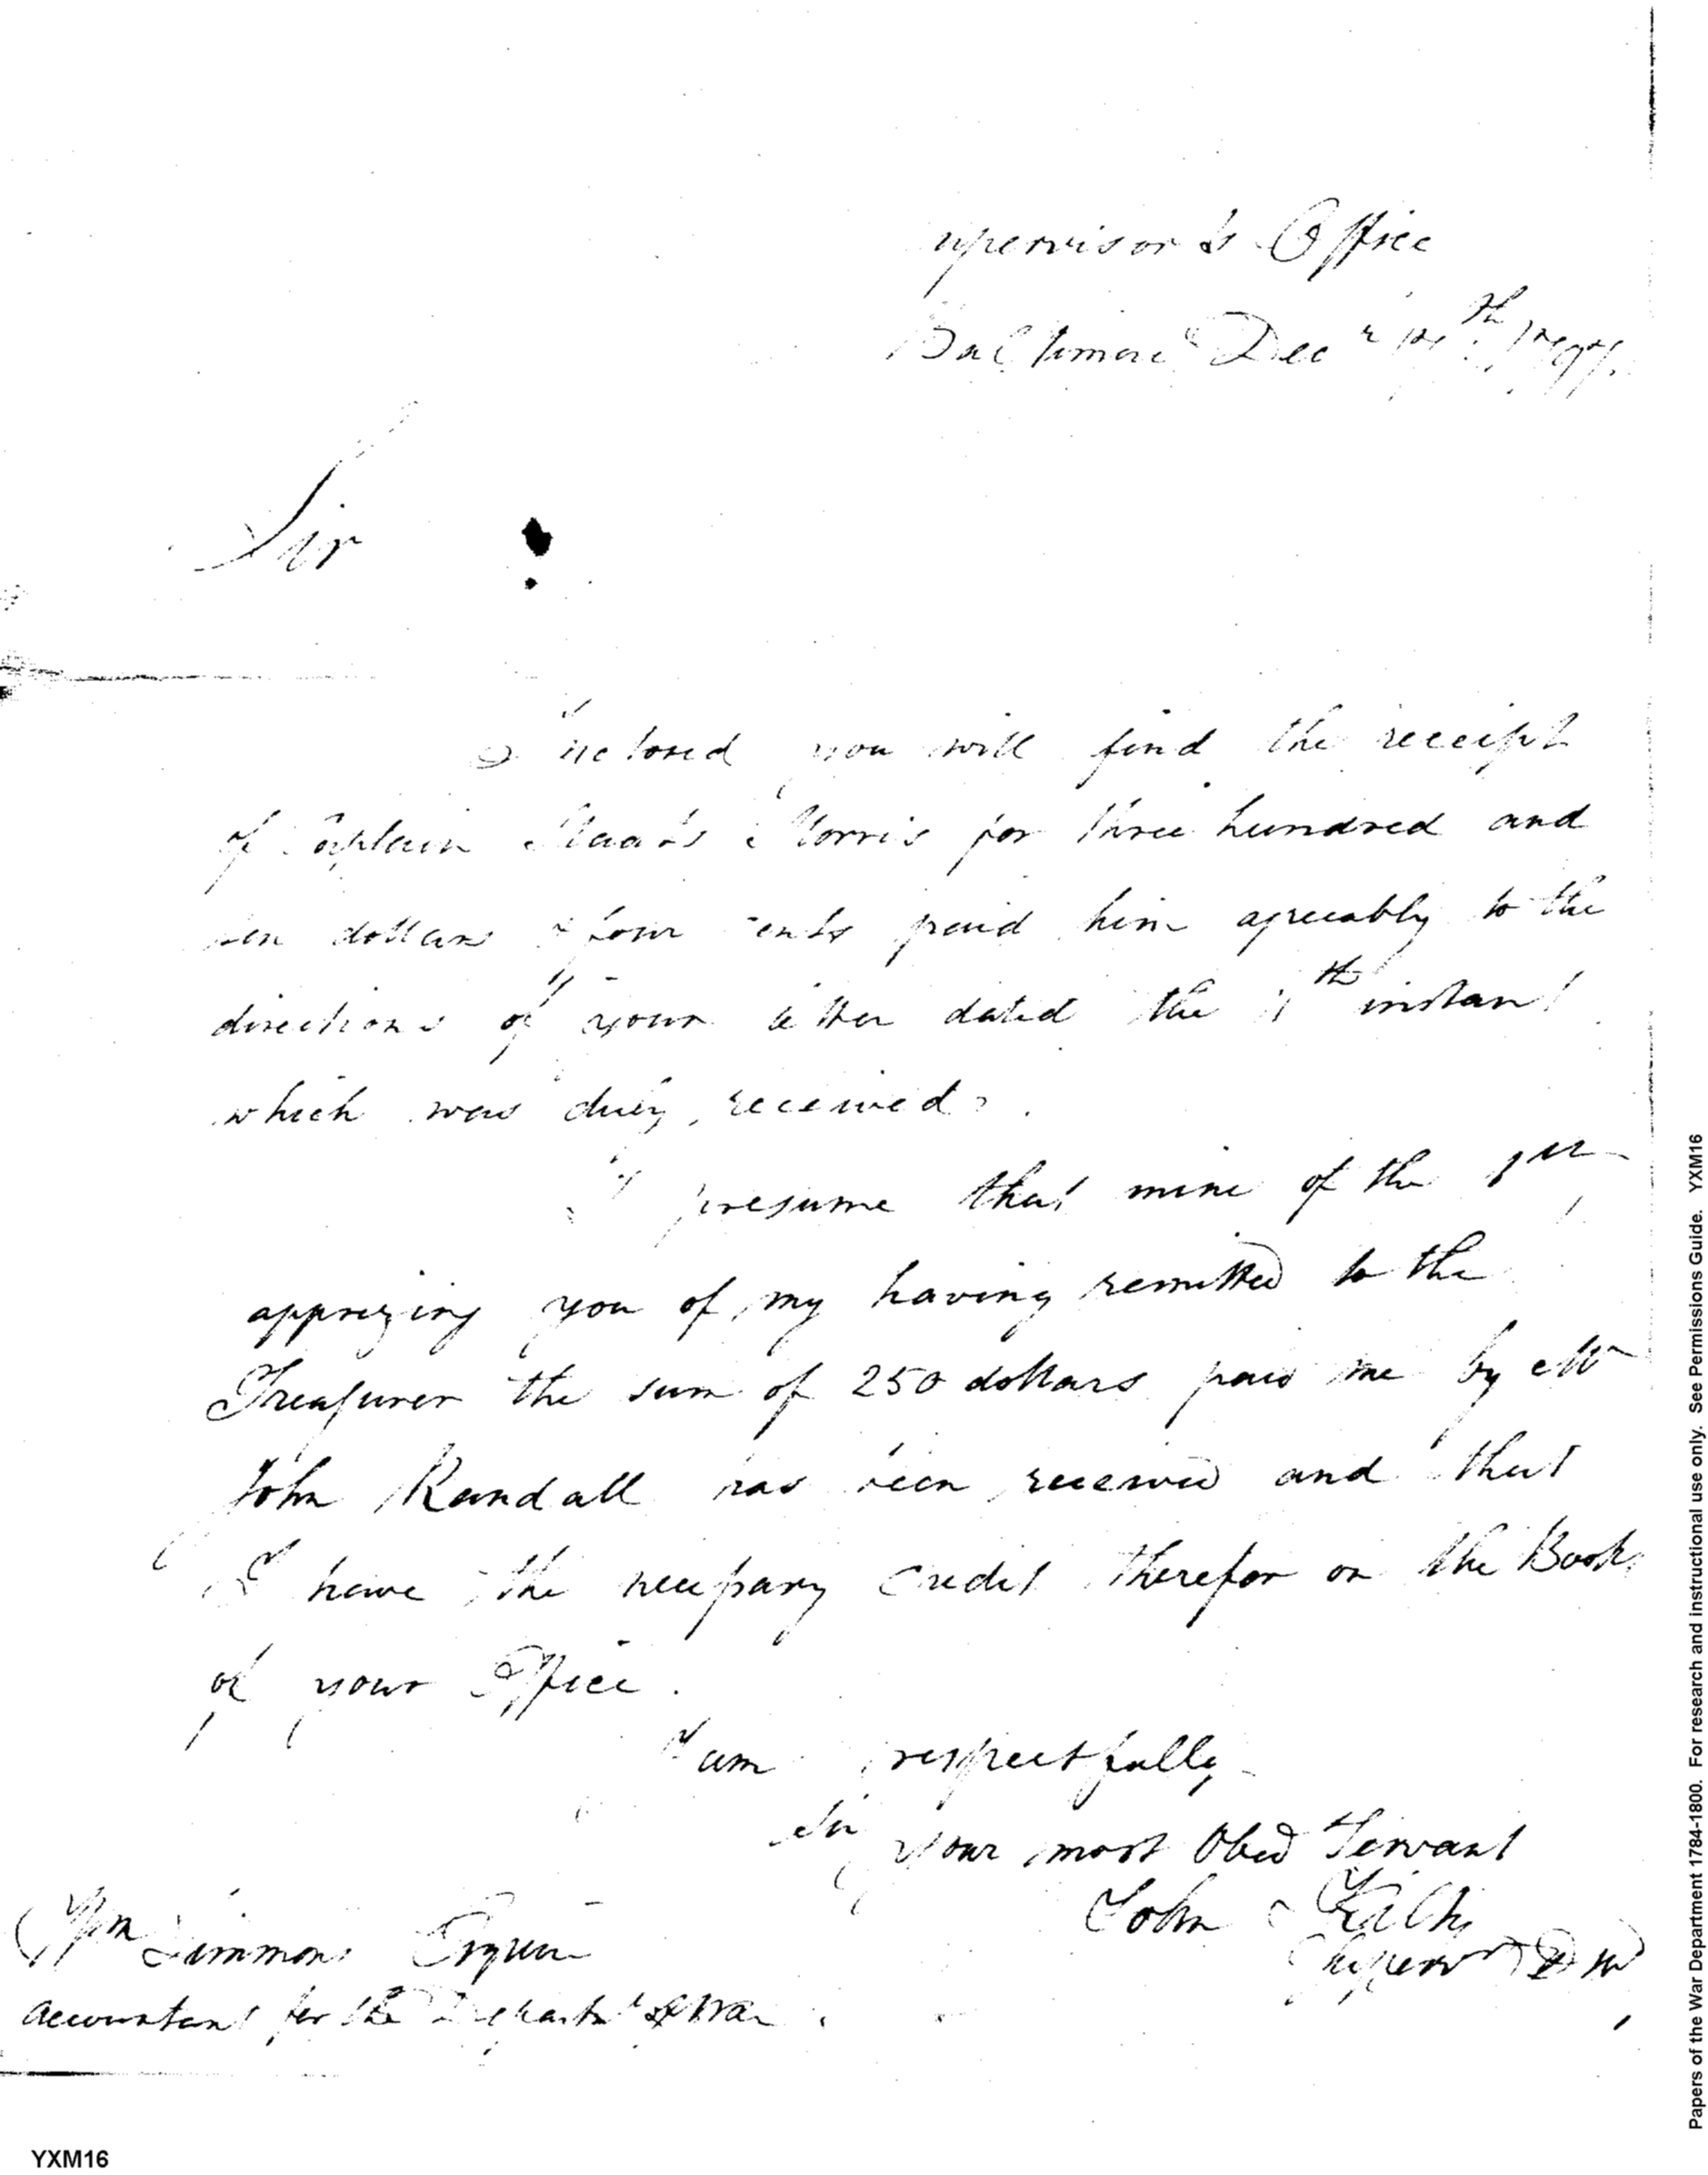 upervisor's Office
Baltimore Decr 14th 1797.
Sir
Inclosed you will find the receipt
of Captain Staats Morris for three hundred and
ten dollars & four cents paid him agreeably to the
directions of your letter dated the th instant
which was duly received.
I presume that mine of the 1st
apprizing you of my having remitted to the
Treasurer the sum of 250 dollars paid me by Mr
John Randall has been received and that
I have the necessary credit therefor on the Books
of your Office.
I am respectfully
Sir your most Obed Servant
John Kilty
Superv
Wm Simmons Esquire
Accountant for the Departmt of War
YXM16
Papers of the War Department 1784-1800. For research and instructional use only. See Permissions Guide. YXM16